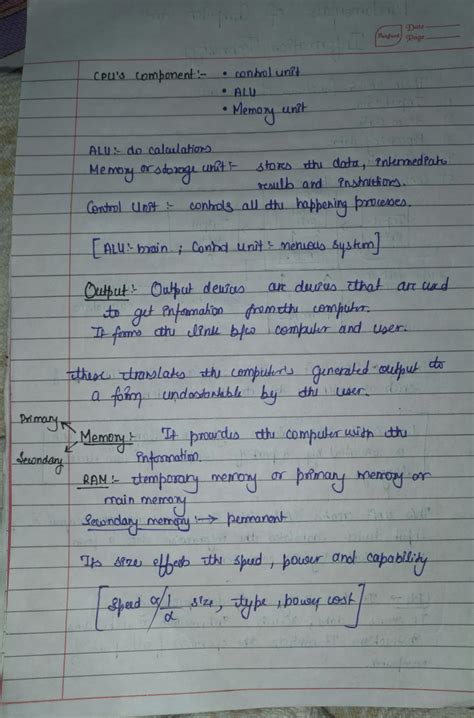 Date
Page
CPU's component:- • control unit
• ALU
• Memory unit
ALU:- do calculations
Memory or storage unit:- stores the data, intermediate
results and instructions.
Control Unit:- controls all the happening processes.
[ALU:- brain ; Control unit:- nervous system]
Output:- Output devices are devices that are used
to get information from the computer.
It forms the link b/w computer and user.
these translates the computer's generated output to
a form understantable by the user.
Primary
Memory:- It provides the computer with the
Secondary
information.
RAM:- temporary memory or primary memory or
main memory
Secondary memory:→ permanent
Its size effects the speed, power and capability
[Speed α 1/α size, type, power cost]